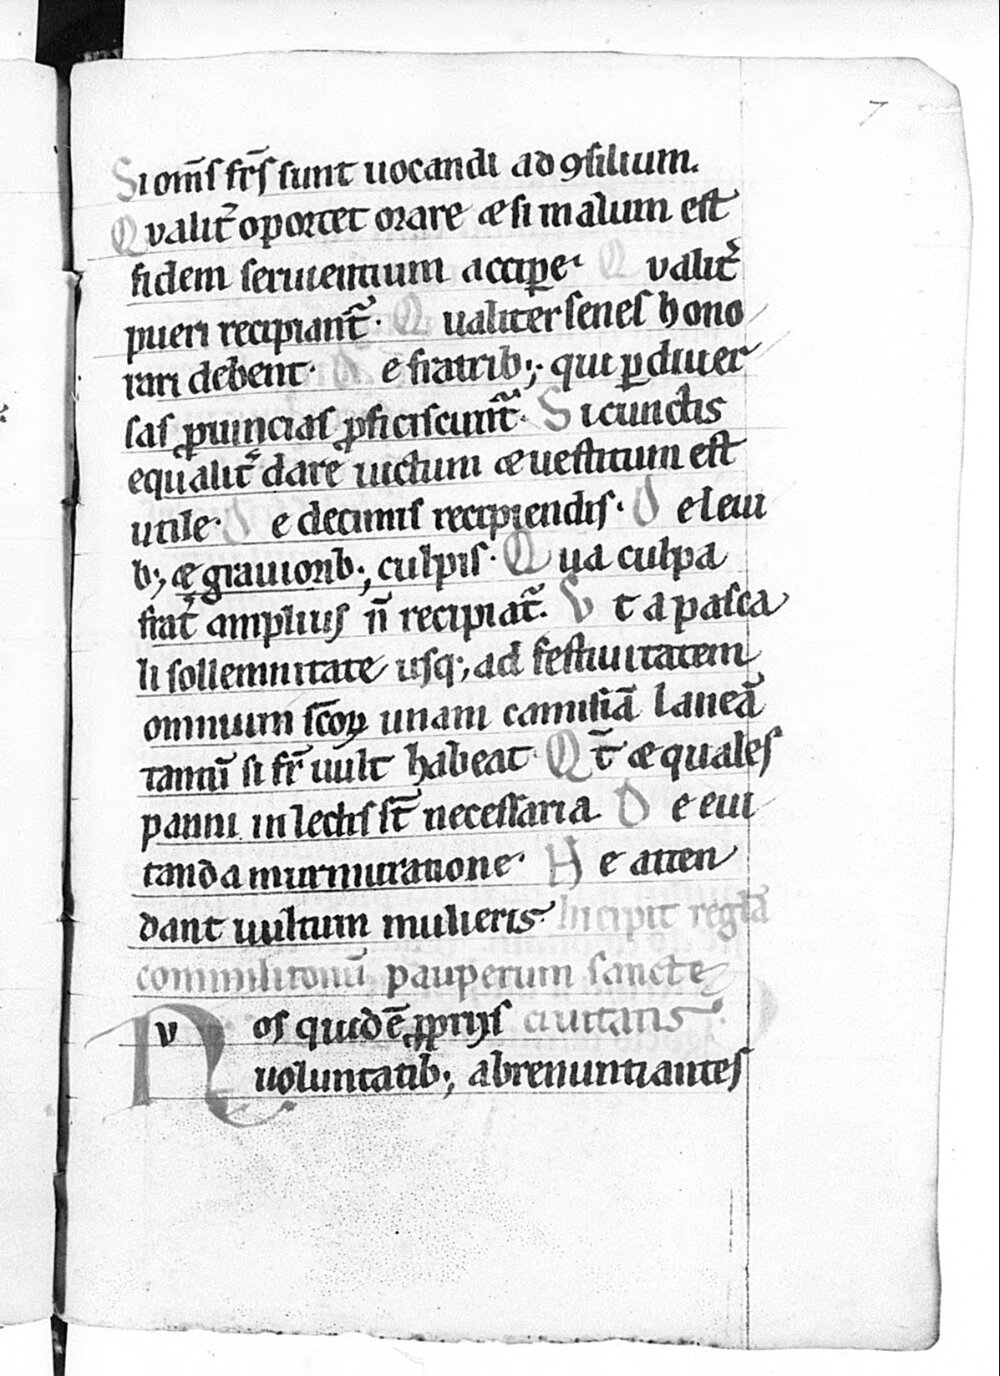 7
Si om̅s fr̅s sunt uocandi ad ꝯsilium.
Qvalit̾ oportet orare & si malum est
fidem seruientium accipe· Qvalit̾
pueri recipiant̃· Qualiter senes hono
rari debent· De fratrib; qui ꝑ diuer
sas ꝓuincias ꝓficiscunt̃· Si cunctis
equalit̾ dare uictum & uestitum est
utile· De decimis recipiendis· De leui
b; & grauiorib; culpis· Qua culpa
frat̾ amplius n̅ recipiat̃· Vt a pasca
li sollemnitate usq; ad festiuitatem
omnium sc̅oꝝ unam camisiã laneã
tantũ si fr̅ uult habeat Qt̅ & quales
panni in lectis st̅ necessaria De eui
tanda murmuratione· He atten
dant uultum mulieris· Incipit regl̃a
commilitonũ pauperum sancte
Nos quidẽ ꝓprijs ciuitatis·
uoluntatib; abrenuntiantes